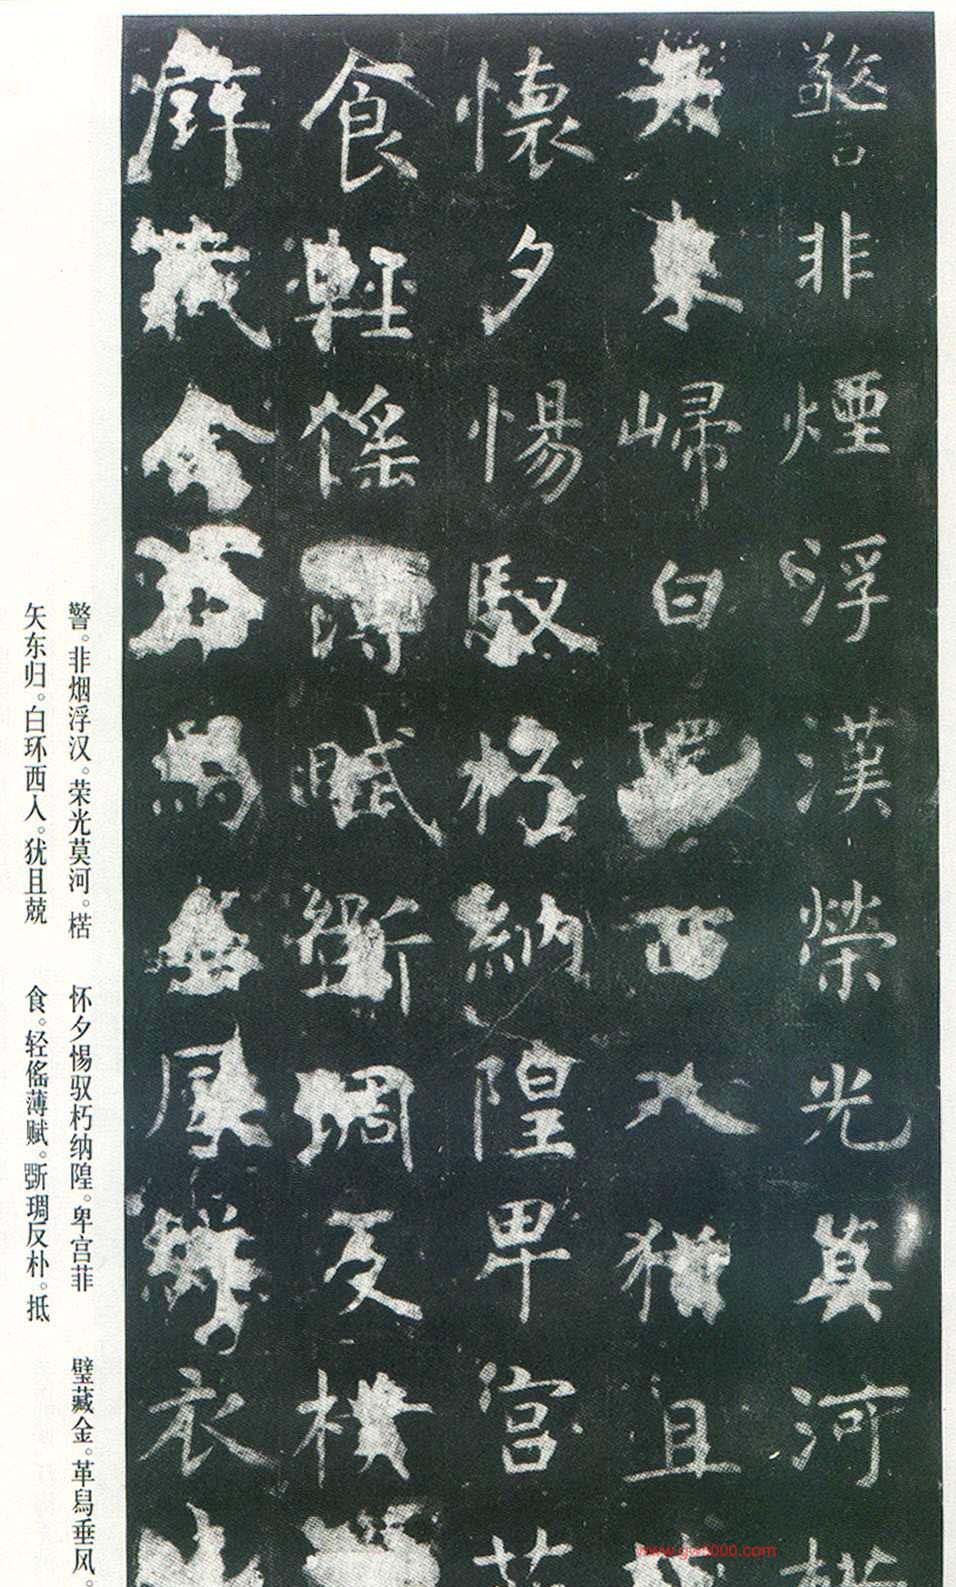 警非煙浮漢榮光莫河楛
矢東歸白環西入猶且
懷夕惕馭朽納隍卑宮菲
食輕徭薄賦斲琱反樸
璧藏金革舄垂風綈衣
警。非烟浮汉。荣光莫河。楛
矢东归。白环西入。犹且兢
怀夕惕驭朽纳隍。卑宫菲
食。轻徭薄赋。斲琱反朴。抵
璧藏金。革舄垂风。